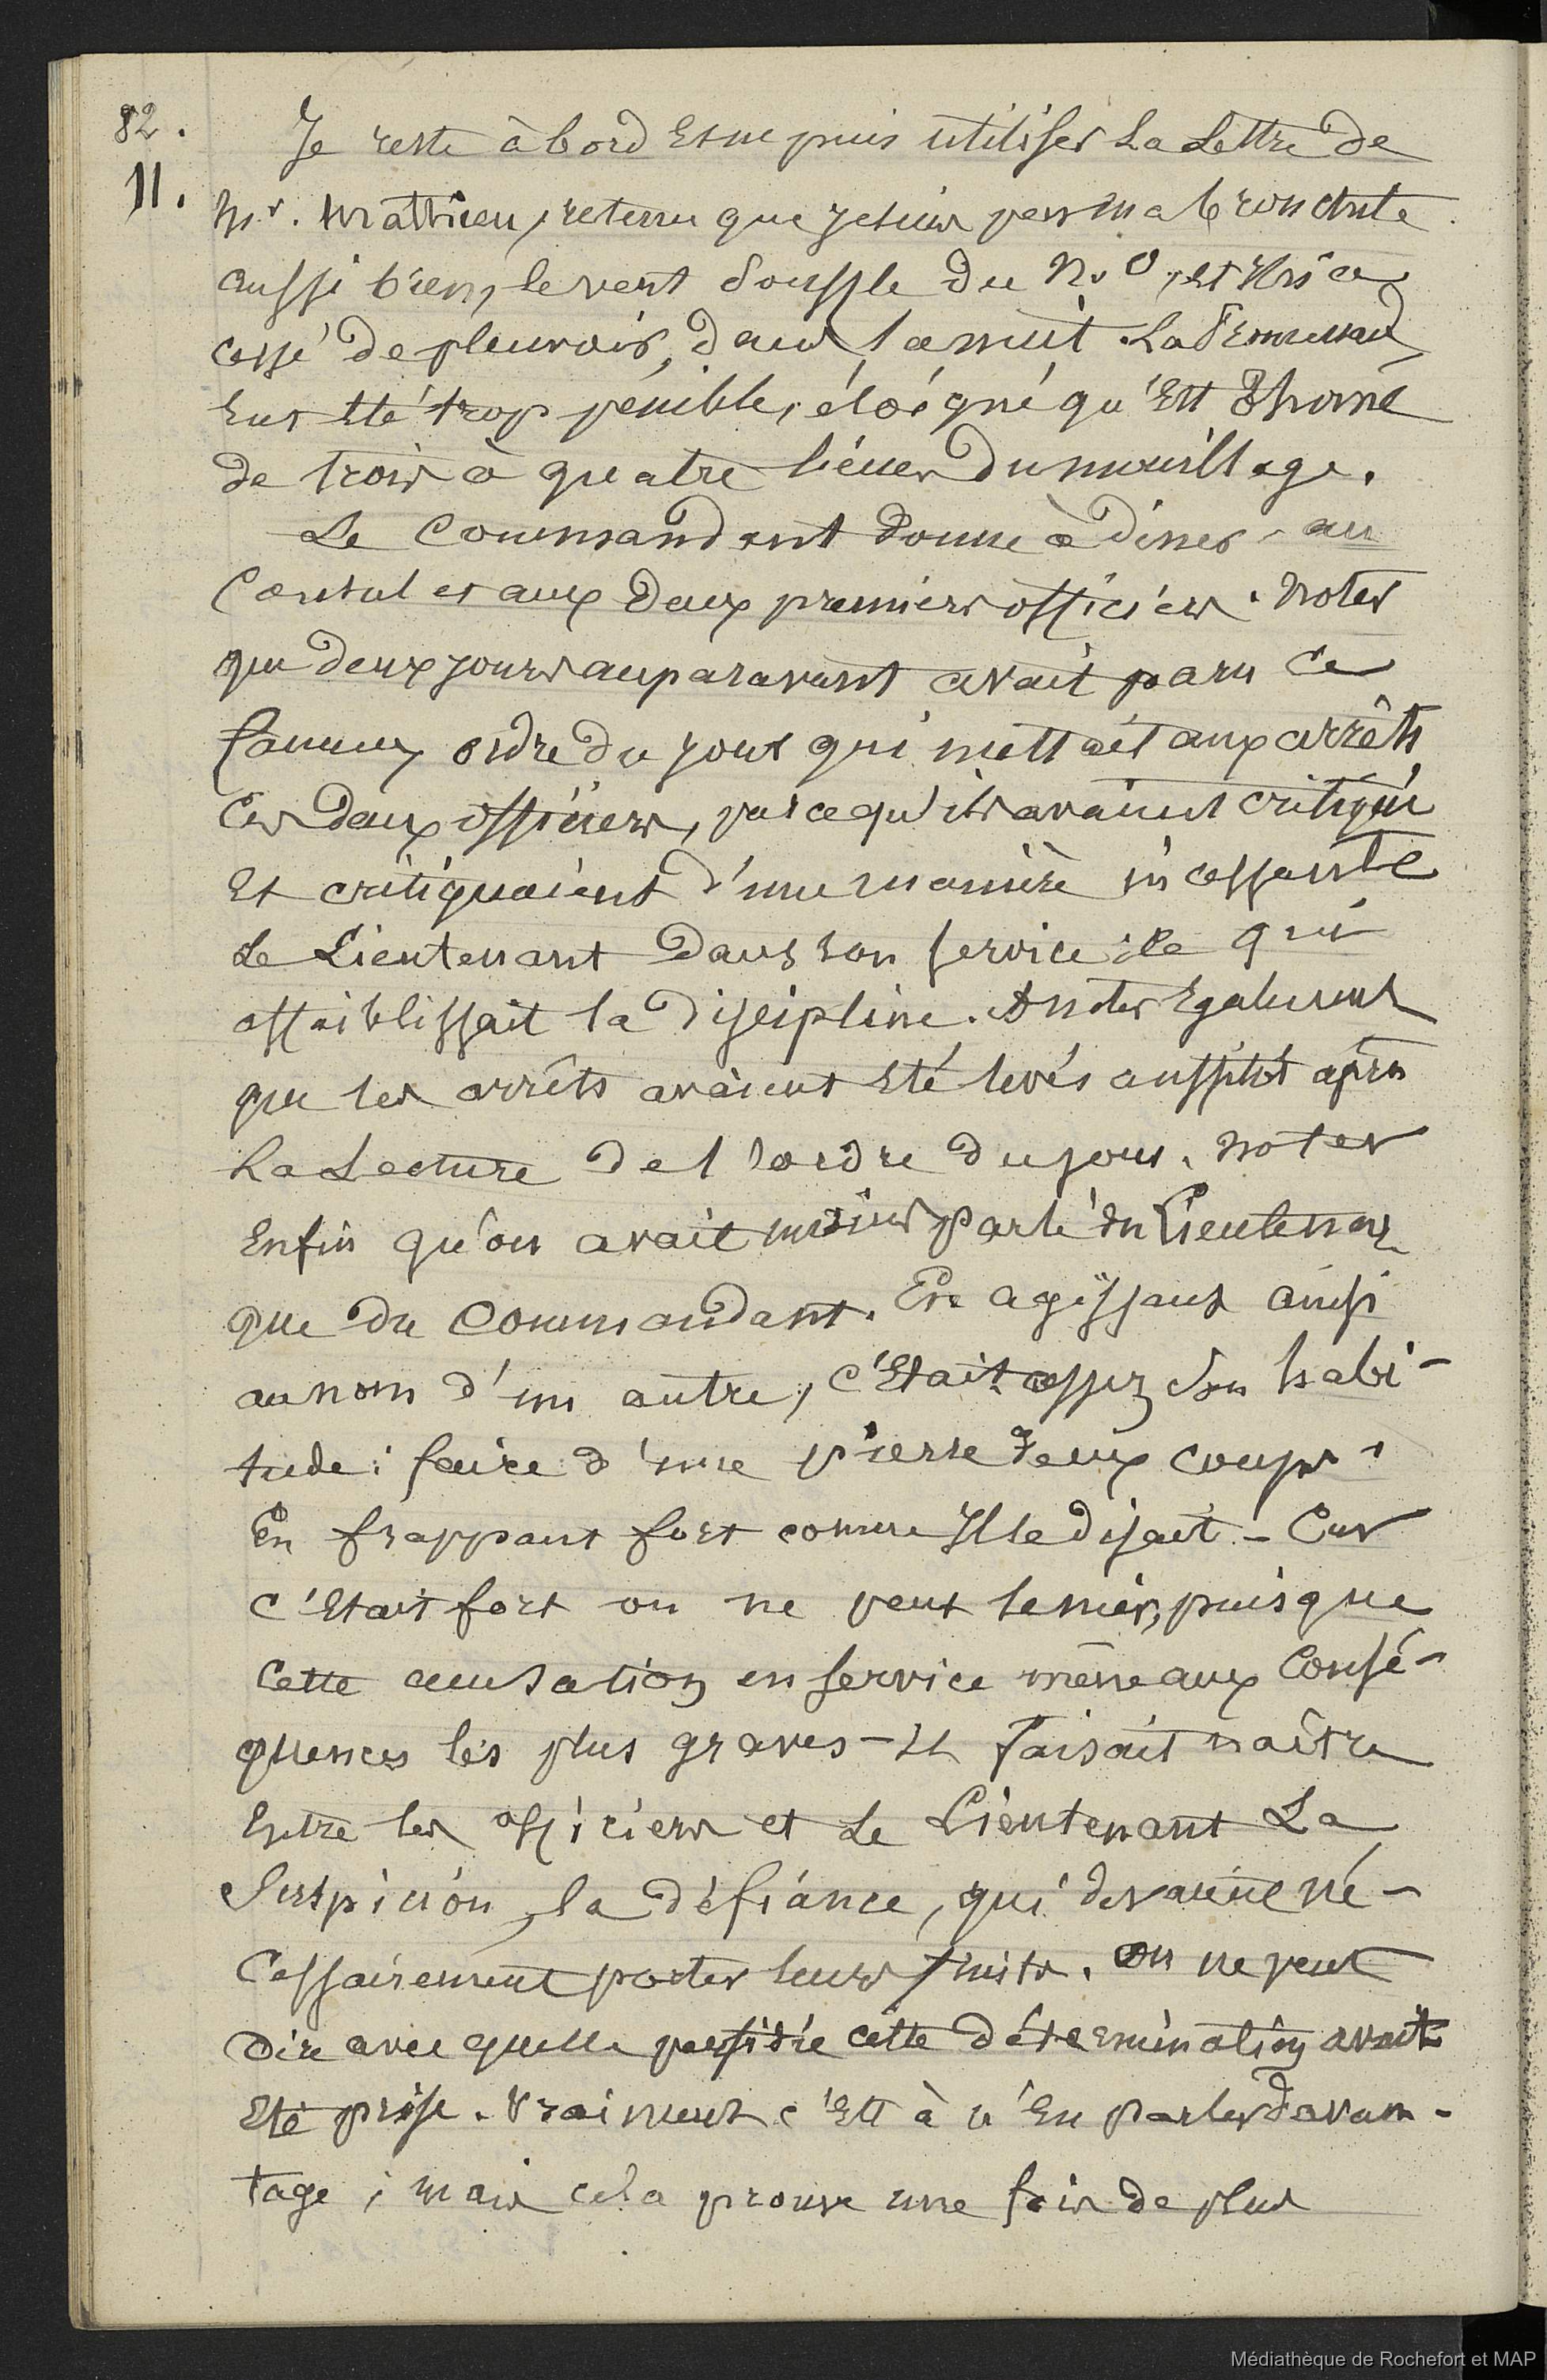 82.
11.
Je reste à bord Et ne puis utiliser La Lettre de
Mr. Mathieu, retenu que je suis par ma bronchite
aussi bien, le vent Souffle du N. O, et Il n'a
cessé de pleuvoir, dans la nuit. La Promenade
Eut Eté trop pénible, éloigné qu'Est
de trois à quatre lieues du mouillage.
Le Commandant donne à dîner au
Consul et aux deux premiers officiers. Noter
que deux jours auparavant avait paru Ce
fameux ordre du jour qui mettait aux arrêts
Ces deux officiers, parce qu'ils avaient critiqué
Et critiquaient d'une manière incessante
Le Lieutenant dans son service, Ce qui
affaiblissait la discipline. A noter Egalement
que les arrêts avaient Eté levés aussitôt après
La Lecture de l'ordre du jour. Noter
Enfin qu'on avait moins parlé du Lieutenant
que du Commandant. En agissant ainsi
au nom d'un autre, c'Etait assez Son habi-
tude: faire d'une pierre deux coups,
En frappant fort comme Il le disait – Car
c'Etait fort on ne peut le nier, puisque
Cette accusation en service mène aux Consé-
quences les plus graves – Et faisait naître
Entre les officiers et Le Lieutenant La
Suspicion, la défiance, qui devaient né-
Cessairement porter leurs fruits. On ne peut
Dire avec quelle perfidie cette détermination avait
Eté prise. Vraiment c'Est à n'En parler davan-
tage; mais cela prouve une fois de plus
Médiathèque de Rochefort et MAP